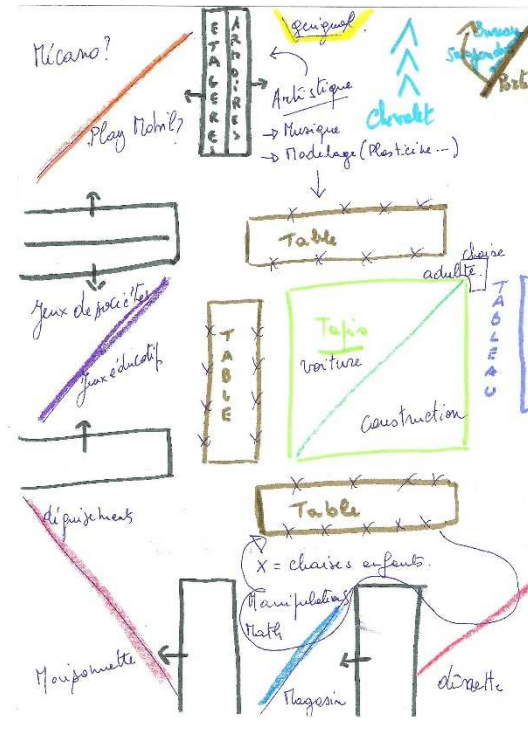 Mécano?
Play Mobil?
ETAGERES
ARMOIRES
guignol
Artistique
→ Musique
→ Modelage (Plasticine...)
Chevalet
Bureau
Porte
Table
chaise
adulte
Jeux de sociétés
Jeux éducatifs
TABLE
Tapis
voiture
construction
TABLEAU
Table
déguisements
X = chaises enfants.
Manipulations
Math
Maisonnette
Magasin
dînette